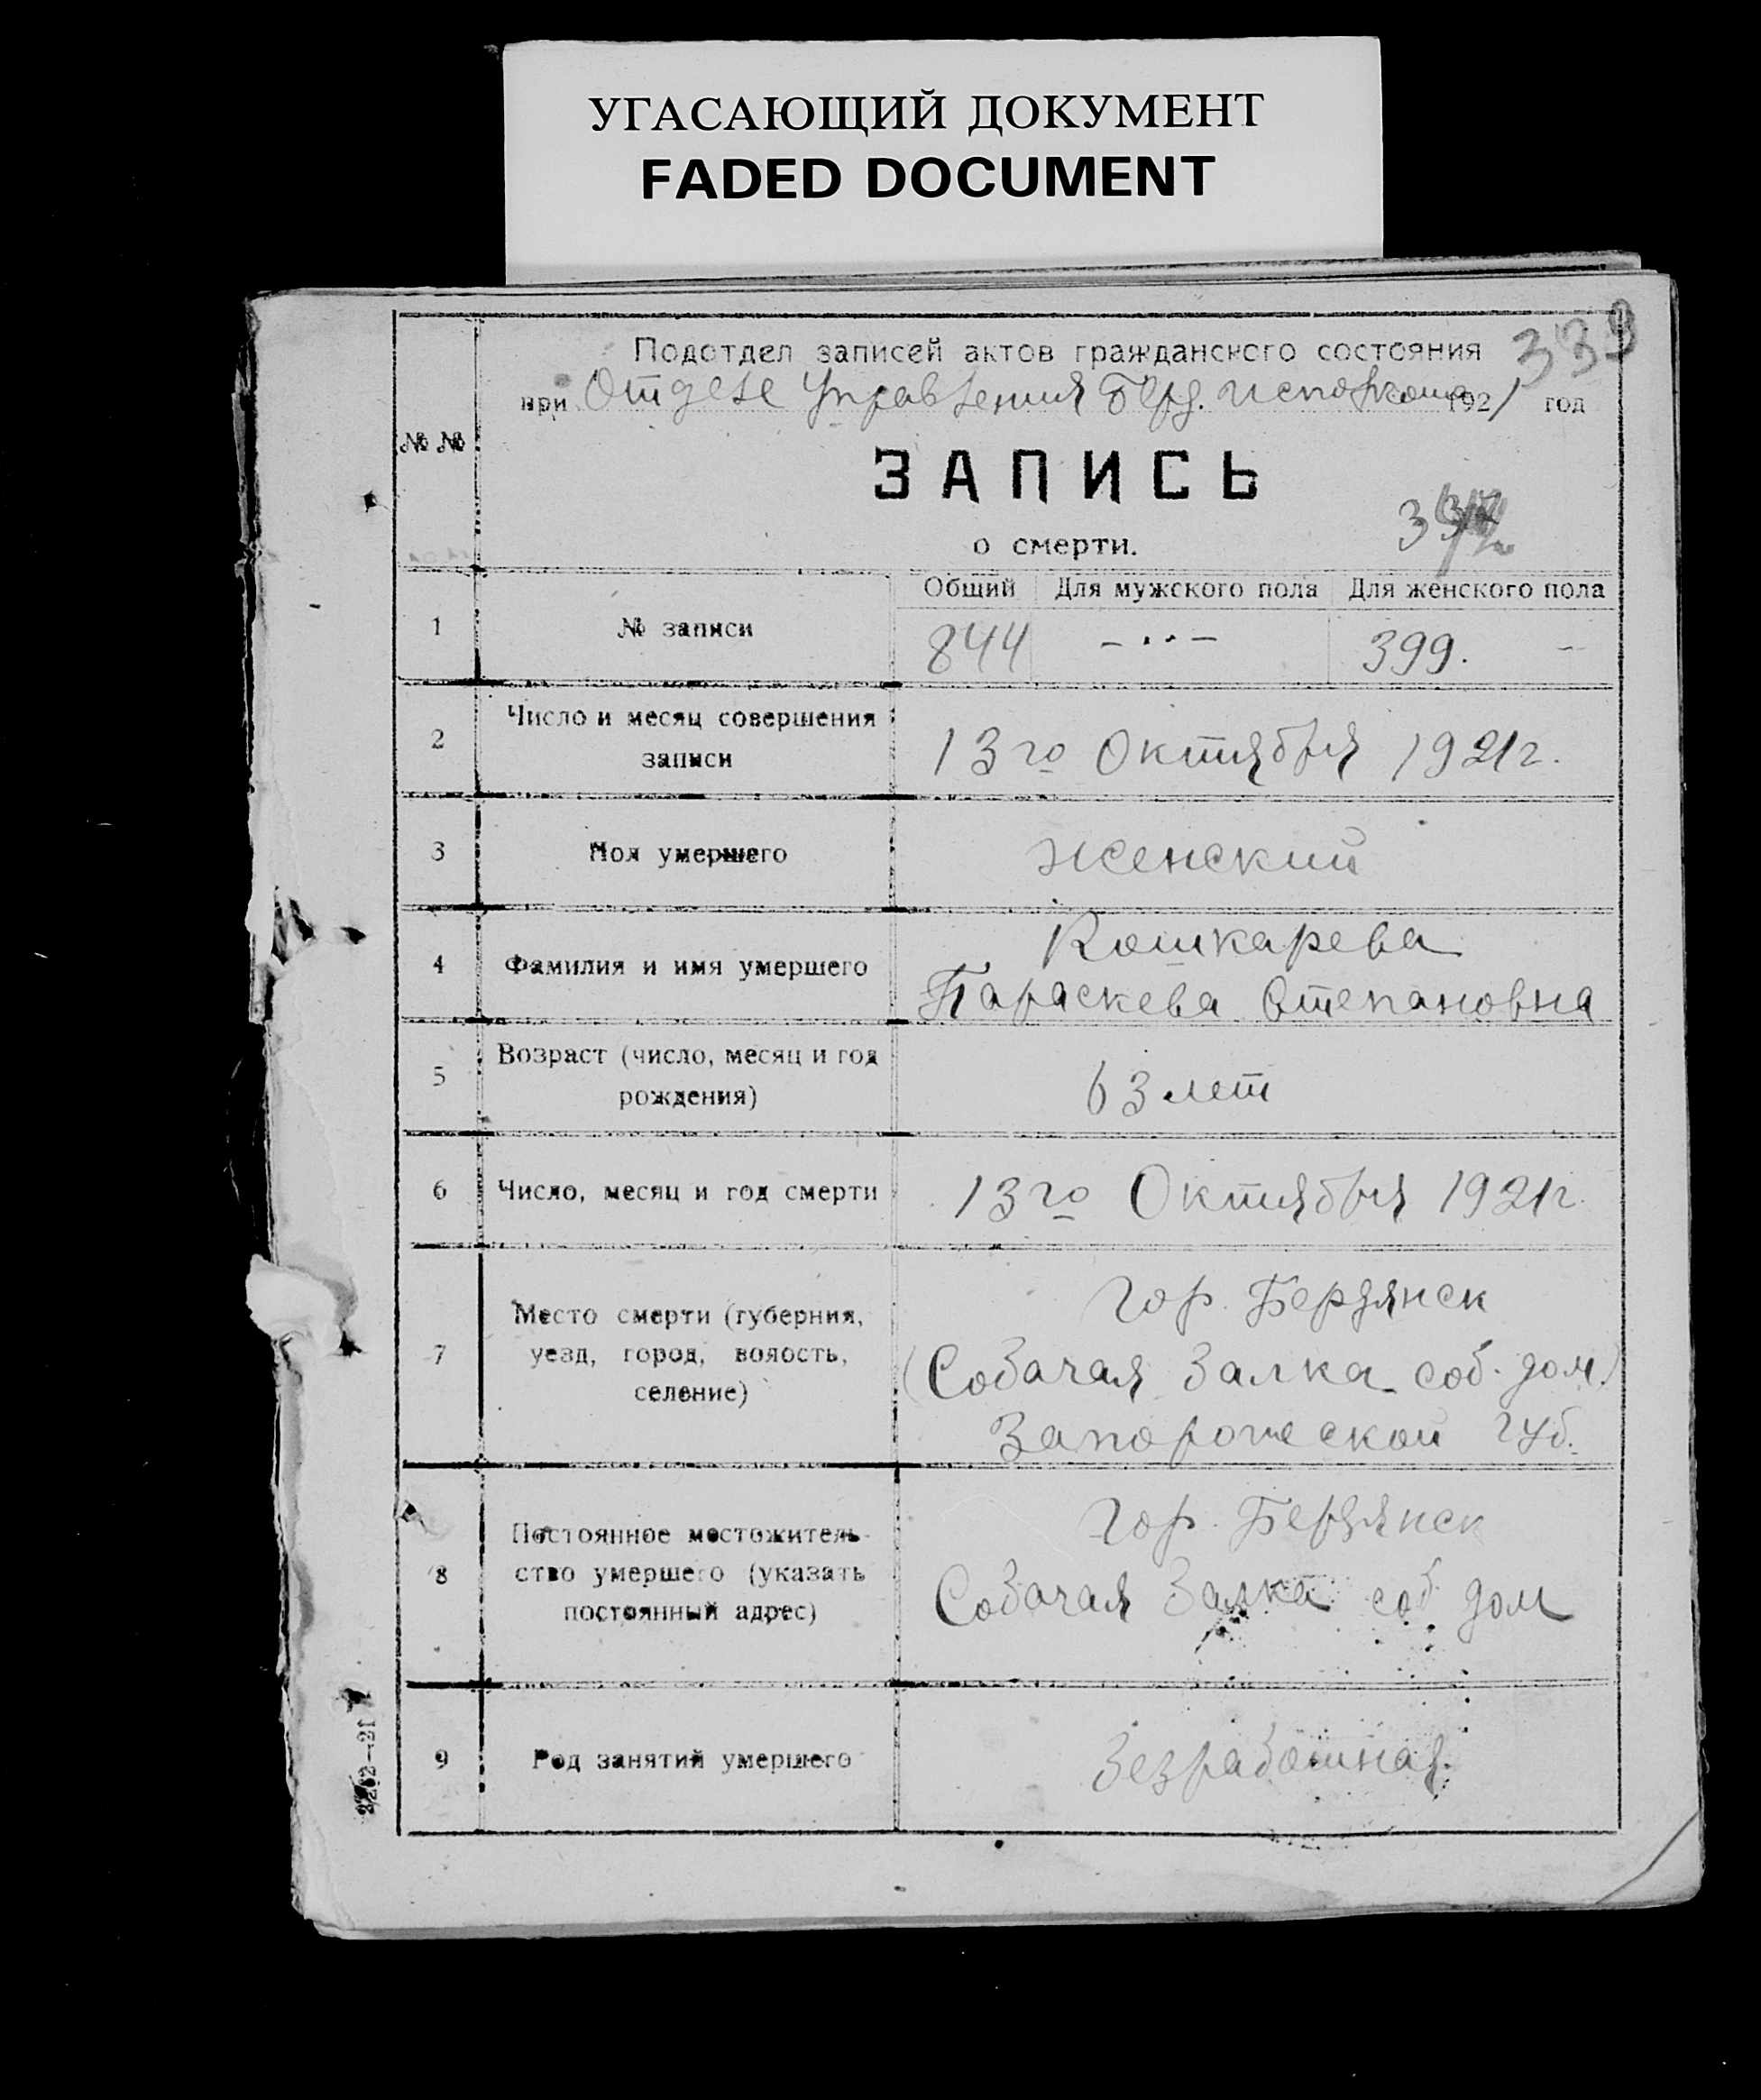 УГАСАЮЩИЙ ДОКУМЕНТ
FADED DOCUMENT
339
Подотдел записей актов гражданского состояния
при Отделе Управления Берд. Исполкома 1921 год
№ №
ЗАПИСЬ
о смерти.
Общий Для мужского пола Для женского пола
1 № записи 844 — ·· — 399. —
2 Число и месяц совершения
записи
13го Октября 1921г.
3 Пол умершего Женский
4 Фамилия и имя умершего
Кошкарева
Параскева Степановна
5 Возраст (число, месяц и год
рождения)
63 лет
6 Число, месяц и год смерти 13го Октября 1921г.
7 Место смерти (губерния,
уезд, город, волость,
селение)
Гор. Бердянск
(Собачая Балка соб. дом.)
Запорожеской губ.
8 Постоянное местожитель-
ство умершего (указать
постоянный адрес)
Гор. Бердянск
Собачая Балка соб дом
9 Род занятий умершего Безработная.
2262—21